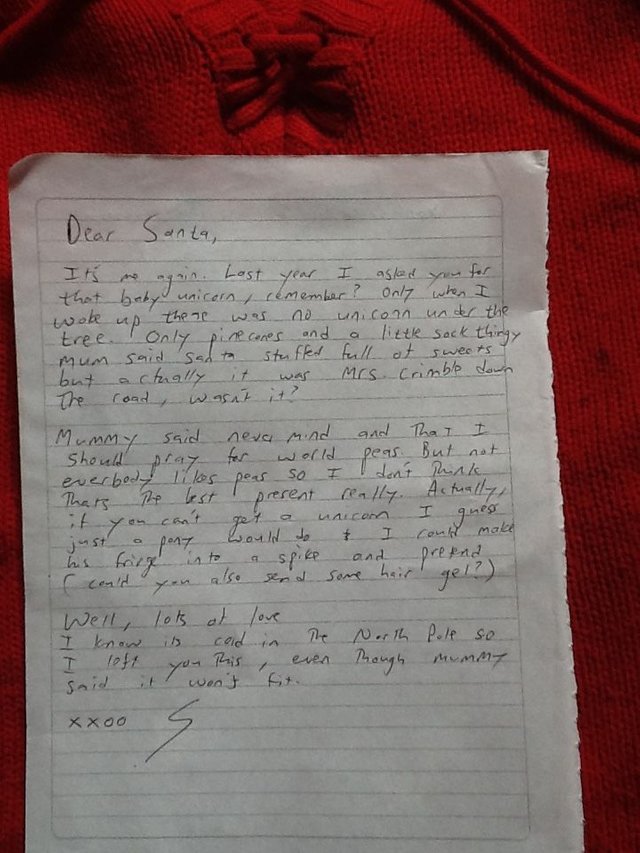 Dear Santa,
It's me again. Last year I asked you for
that baby unicorn, remember? Only when I
woke up there was no unicorn under the
tree. Only pinecones and a little sock thingy
Mum said sadta stuffed full of sweets
but actually it was Mrs. Crimble down
The road, wasn't it?
Mummy said never mind and That I
should pray for world peas. But not
everbody likes peas so I don't Think
Thats The best present really. Actually,
if you can't get a unicorn I guess
just a pony would do & I could make
his fringe into a spike and pretend
(could you also send some hair gel?)
Well, lots of love
I know its cold in The North Pole so
I left you This, even Though mummy
said it won't fit.
xxoo S